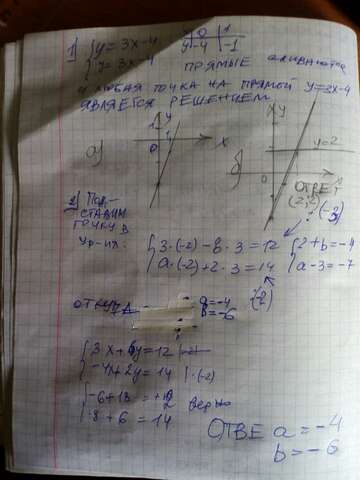 1) { y = 3x-4
{ y = 3x-4
x | 0 | 1
y | -4 | -1
ПРЯМЫЕ
ЛЮБАЯ ТОЧКА НА ПРЯМОЙ y=3x-4
ЯВЛЯЕТСЯ РЕШЕНИЕМ
а)
y
x
0
б)
y
y=2
0
ОТВЕТ
(2;2)
2) ПОД-
СТАВИМ
ТОЧКУ В
УР-ИЯ:
{ 3·(-2)-b·3=12
{ a·(-2)+2·3=14
{ 2+b=-4
{ a-3=-7
ОТКУДА
a=-4
b=-6
{ 3x+6y=12
{ -4x+2y=14 | ·(-2)
{ -6+18=+12 верно
{ 8+6=14
ОТВЕ a=-4
b=-6